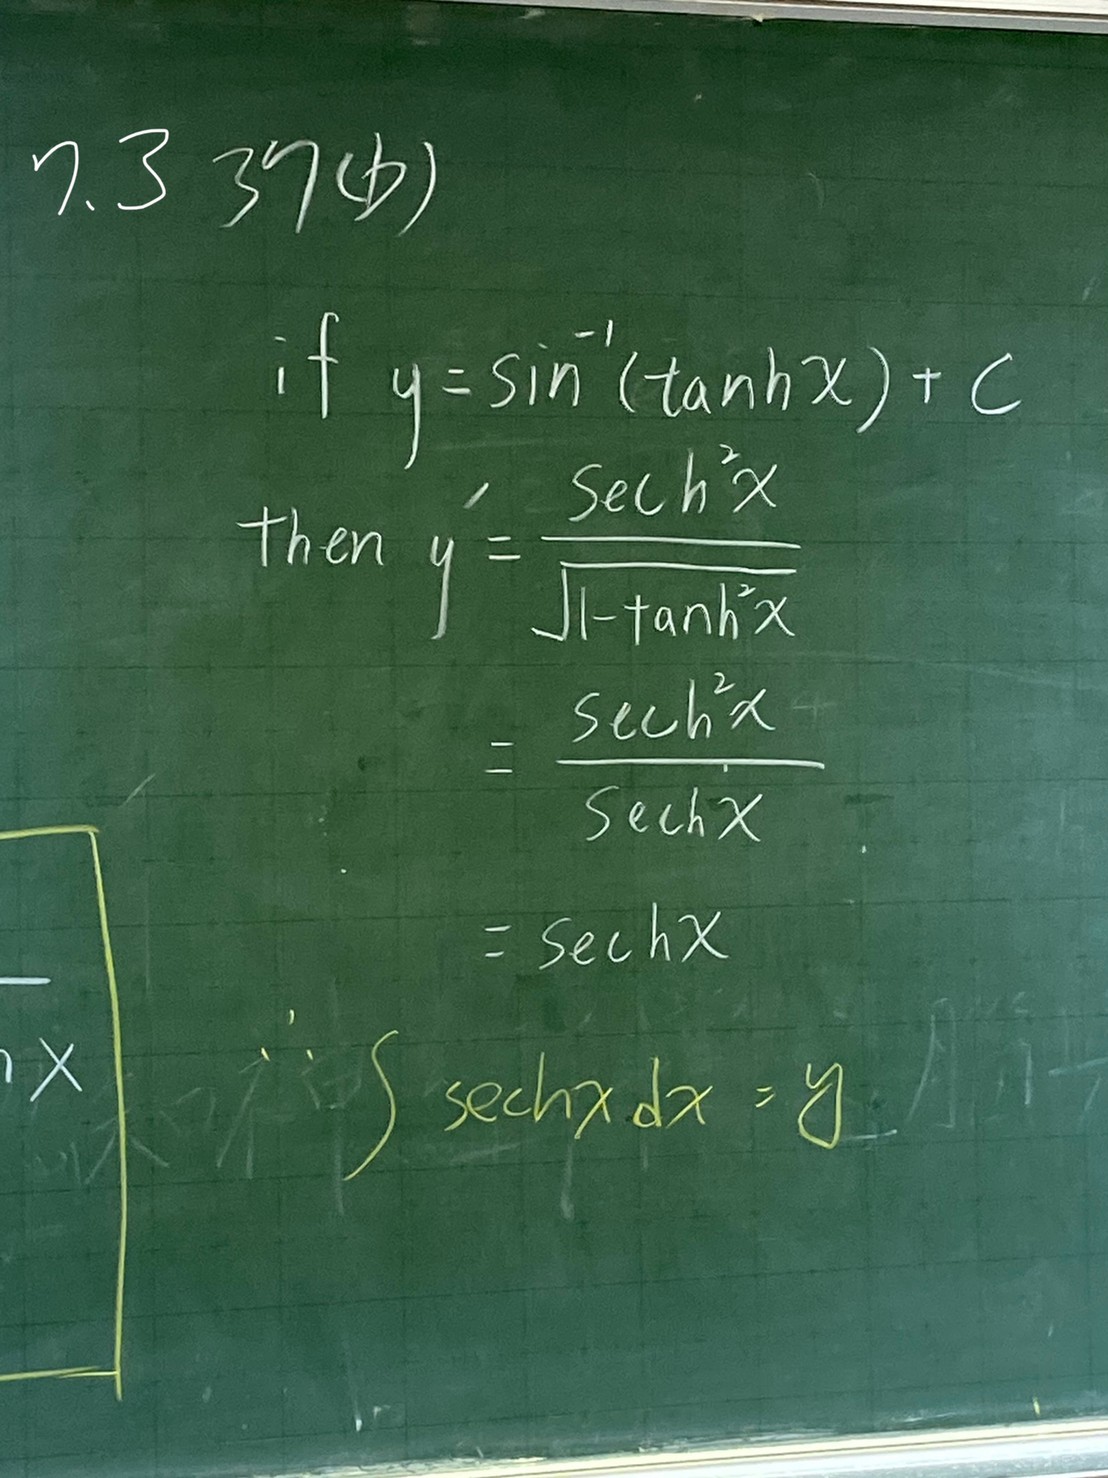 7.3 37(b)
if y = sin⁻¹(tanh x) + C
then y' = sech²x / √(1-tanh²x)
= sech²x / sech x
= sech x
∴ ∫ sech x dx = y
x